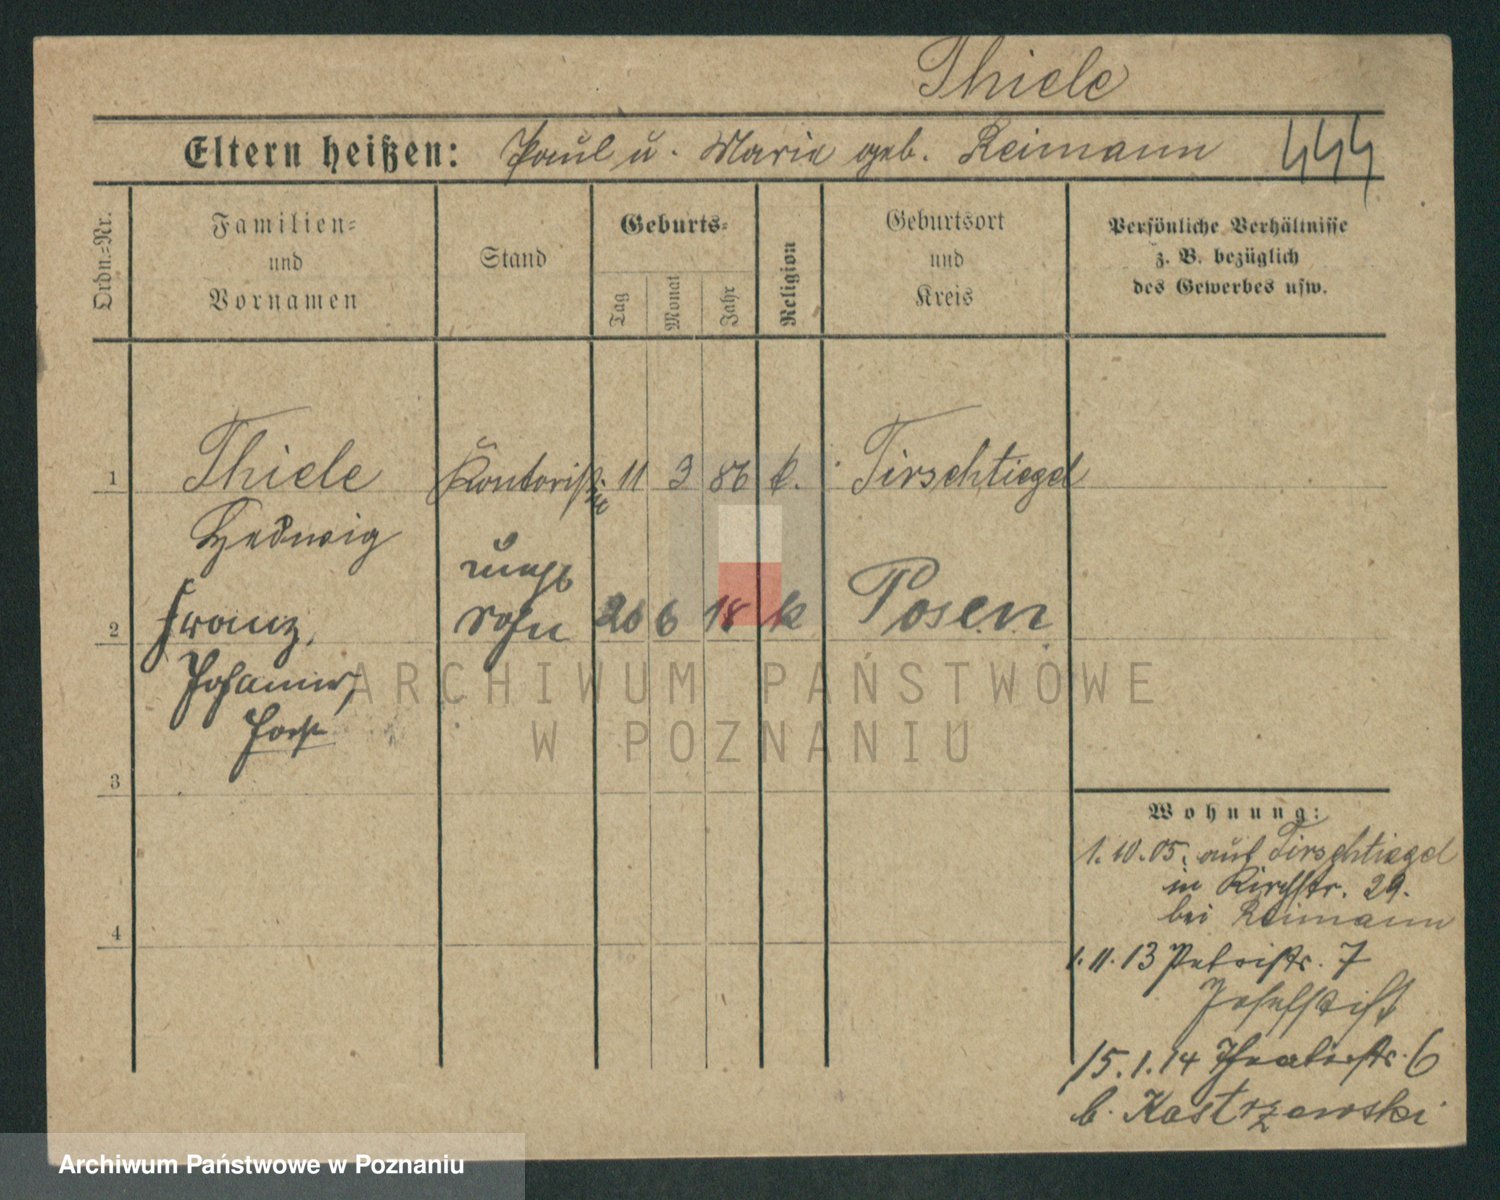 Thiele
Eltern heißen: Paul u. Marie geb. Reimann 444
Ordn.-Nr.
Familien-
und
Vornamen
Stand
Geburts-
Tag
Monat
Jahr
Religion
Geburtsort
und
Kreis
Persönliche Verhältnisse
z. B. bezüglich
des Gewerbes usw.
1 Thiele Kontoristin 11 3 86 k. Tirschtiegel
Hedwig
unehl
2 Franz, Sohn 26 6 18 k Posen
Johannes,
Horst
3
4
Wohnung:
1.10.05. auf Tirschtiegel
in Kirchstr. 29.
bei Reimann
1.11.13 Petristr. 7
Josefstift
15.1.14 Theaterstr. 6
b. Kastrzewski
ARCHIWUM PAŃSTWOWE
W POZNANIU
Archiwum Państwowe w Poznaniu